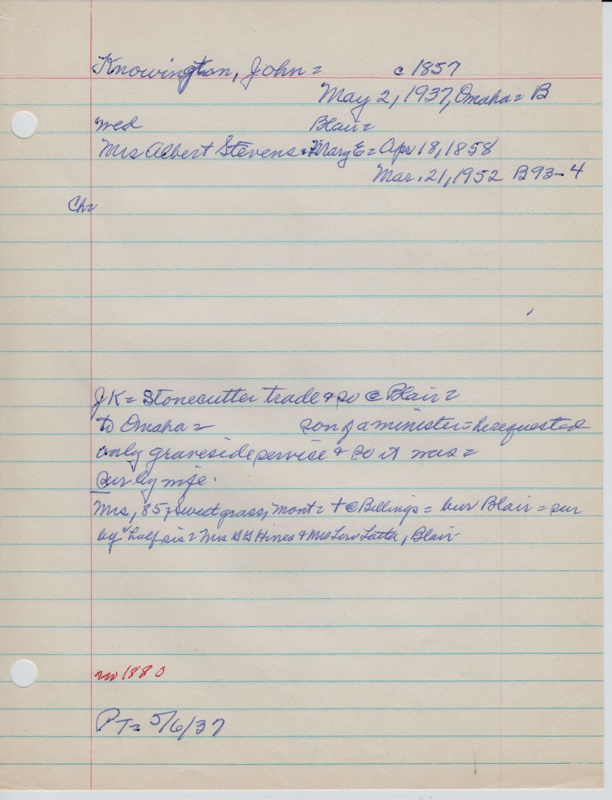 Knowington, John = c 1857
May 2, 1937, Omaha = B
wed Blair =
Mrs Albert Stevens = Mary E = Apr 18, 1858
Mar. 21, 1952 B93-4
Ch =
JK = Stonecutter trade & so @ Blair =
to Omaha = son of a minister = he requested
only graveside service & so it was =
sur by wife.
Mrs, 85, Sweetgrass, Mont = + @ Billings = bur Blair = sur
by half sis = Mrs GG Hines & Mrs Lou Latta, Blair.
no 1880
PT = 5/6/37